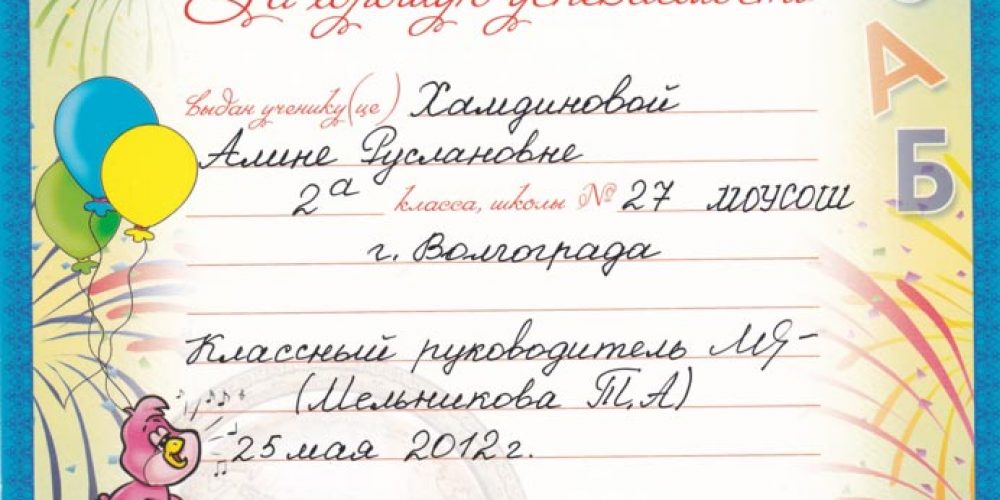 За хорошую успеваемость
Выдан ученику(це) Хамдиновой
Алине Руслановне
2а класса, школы № 27 МОУСОШ
г. Волгограда
Классный руководитель
(Мельникова Т.А)
25 мая 2012 г.
А
Б